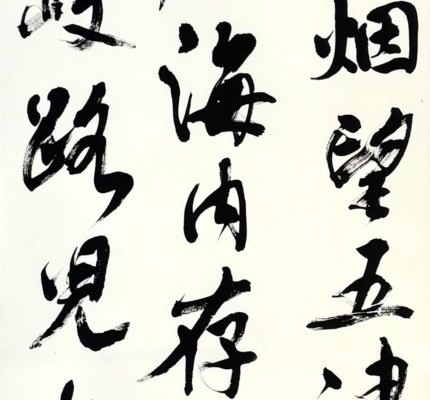 烟望五津
海内存
歧路児